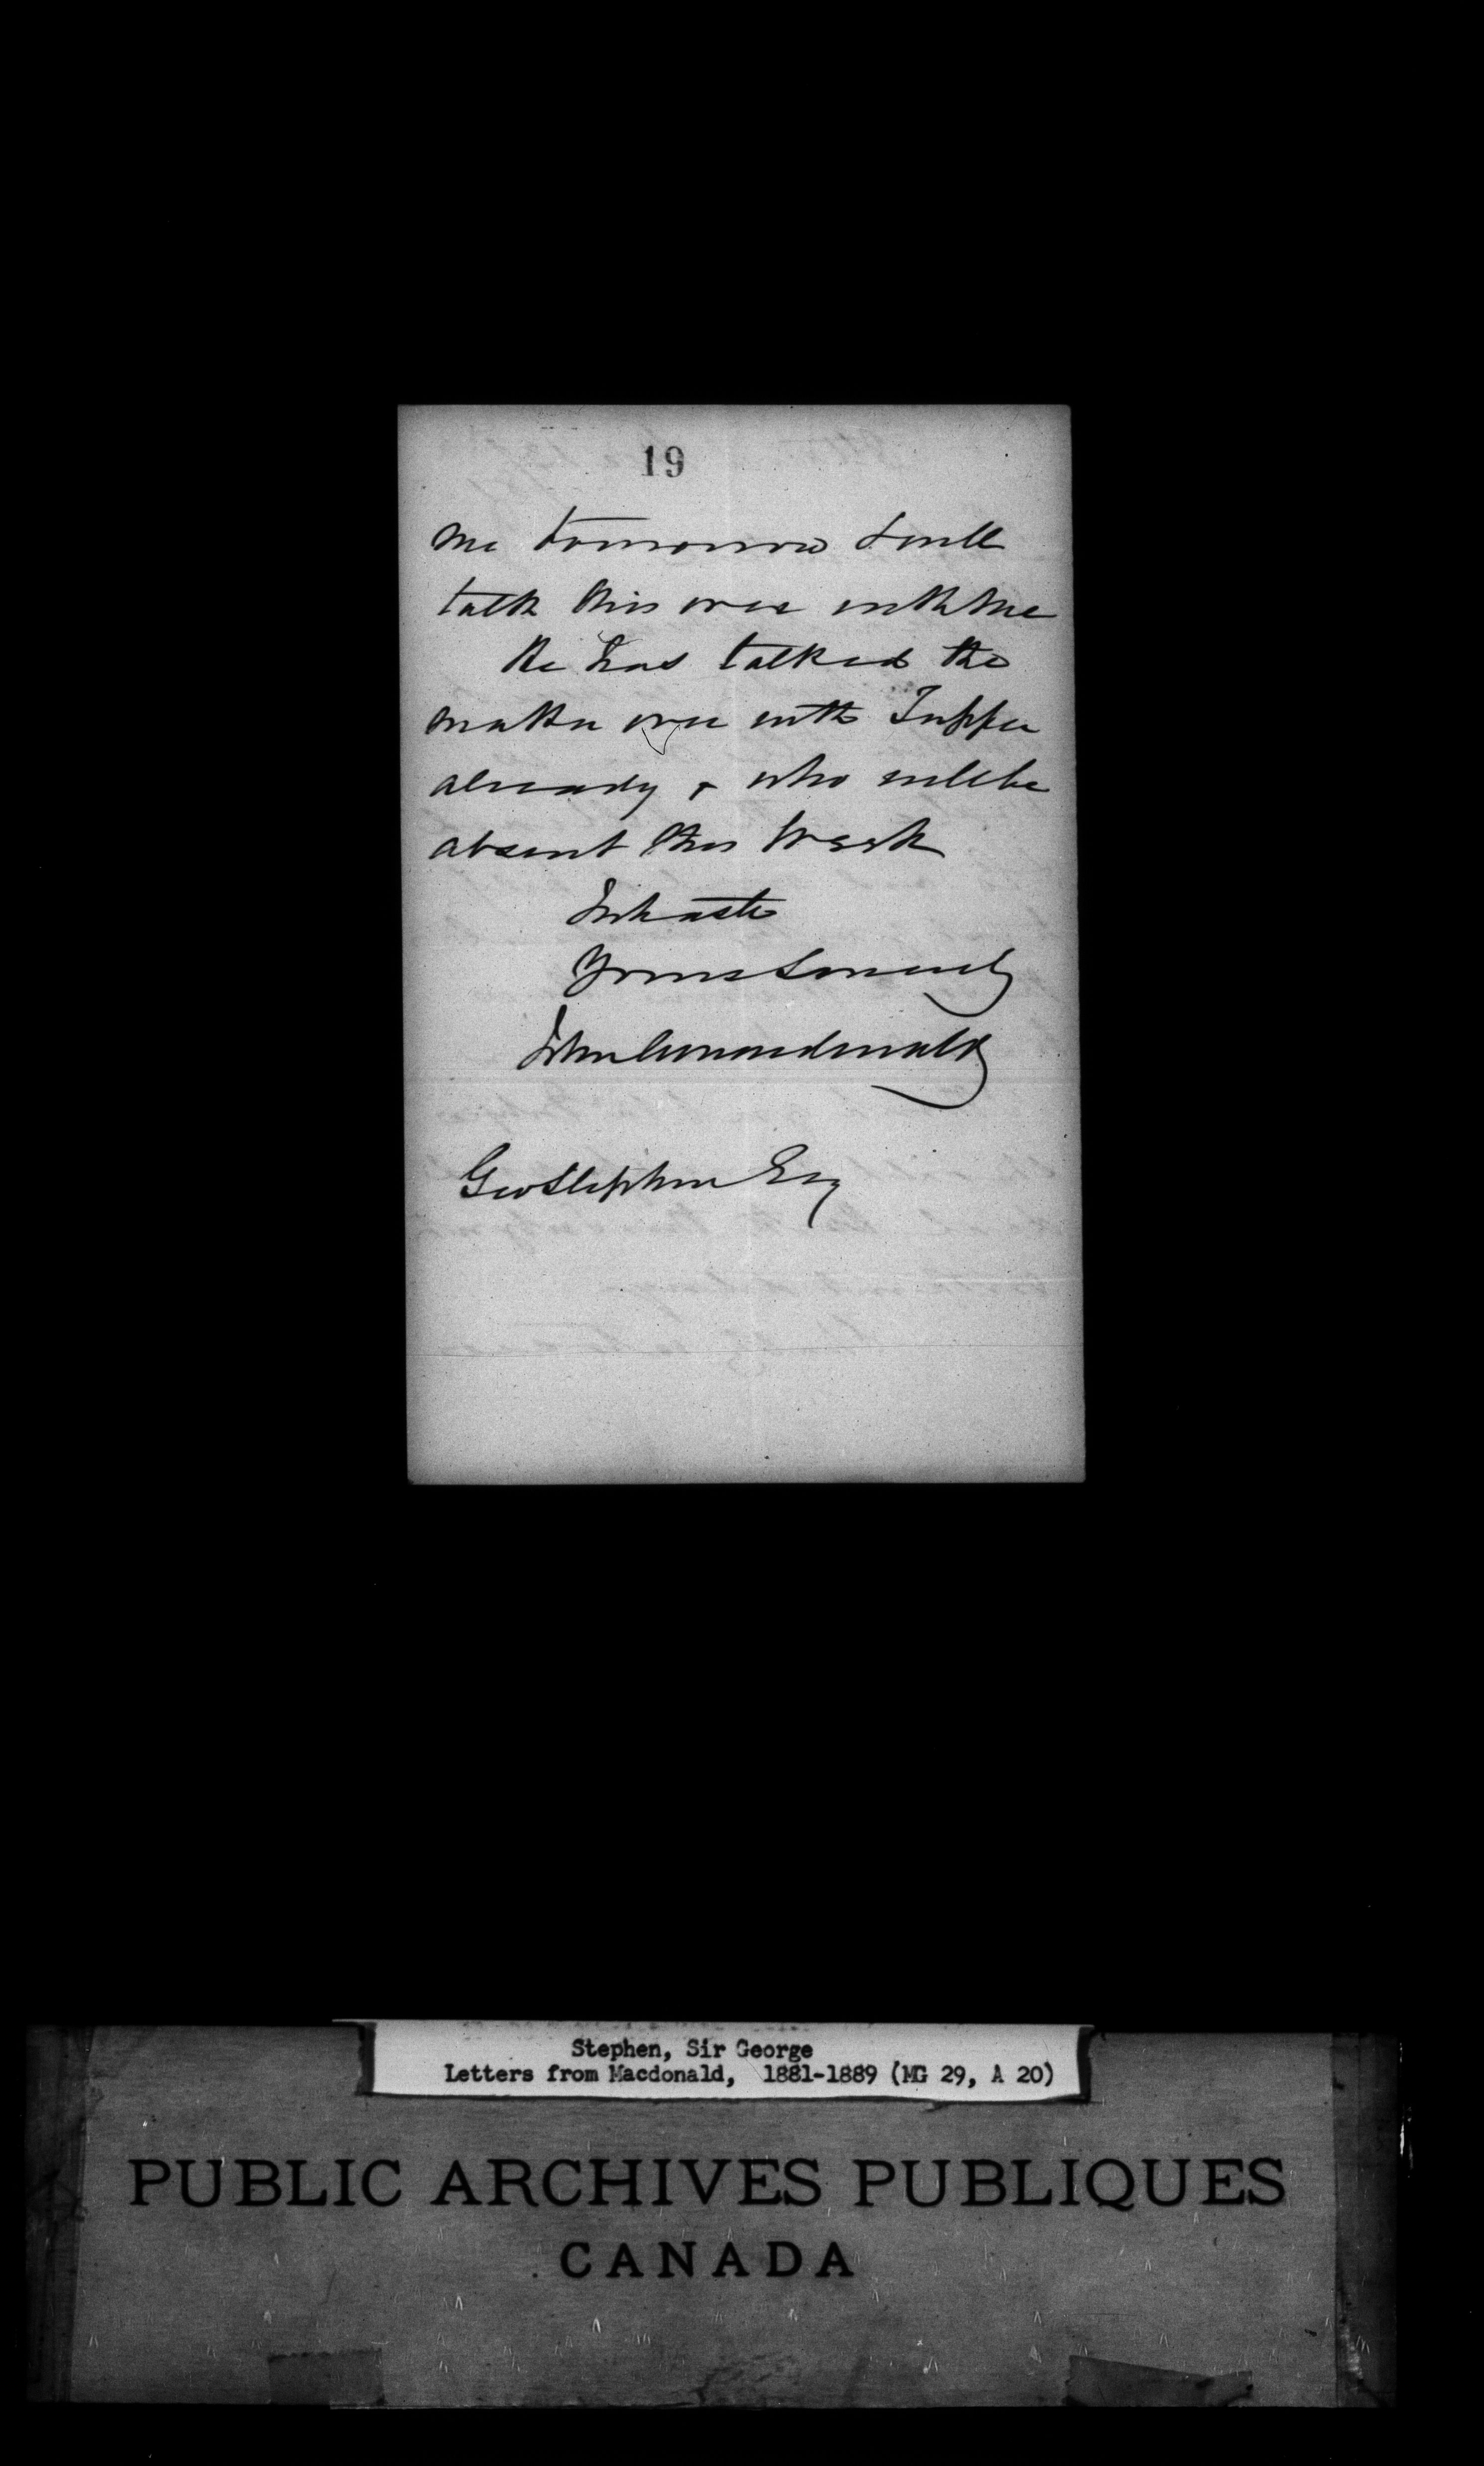 19
me tomorrow & will
talk this over with me
He has talked the
matter over with Tupper
already & who will be
absent this Week
In haste
Yours Sincerely
John A Macdonald
Geo Stephen Esq
Stephen, Sir George
Letters from Macdonald, 1881-1889 (MG 29, A 20)
PUBLIC ARCHIVES PUBLIQUES
CANADA